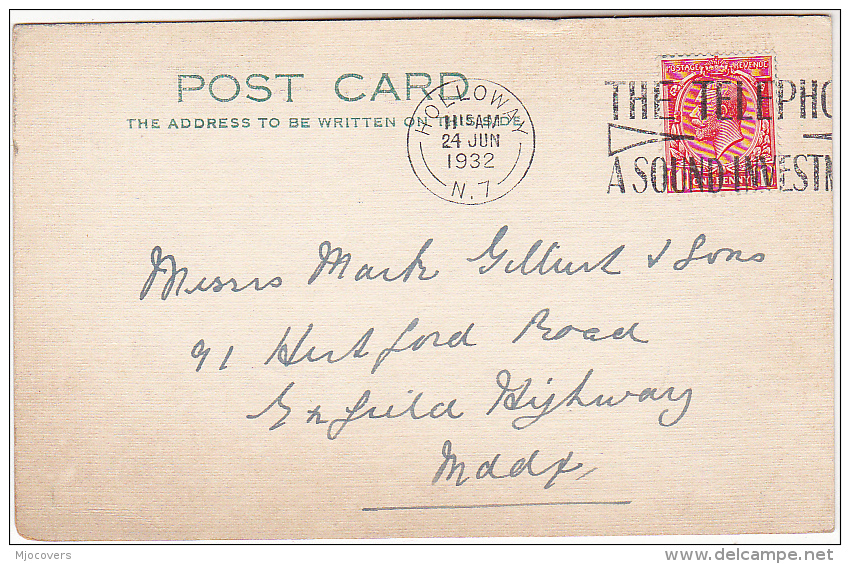 POST CARD
THE ADDRESS TO BE WRITTEN ON THIS SIDE
HOLLOWAY
11 15 AM
24 JUN
1932
N.7
POSTAGE REVENUE
THE TELEPHO
A SOUND INVESTM
Messrs Mark Gilbert & Sons
91 Hertford Road
Enfield Highway
Middx
Mjocovers
delcampe.net